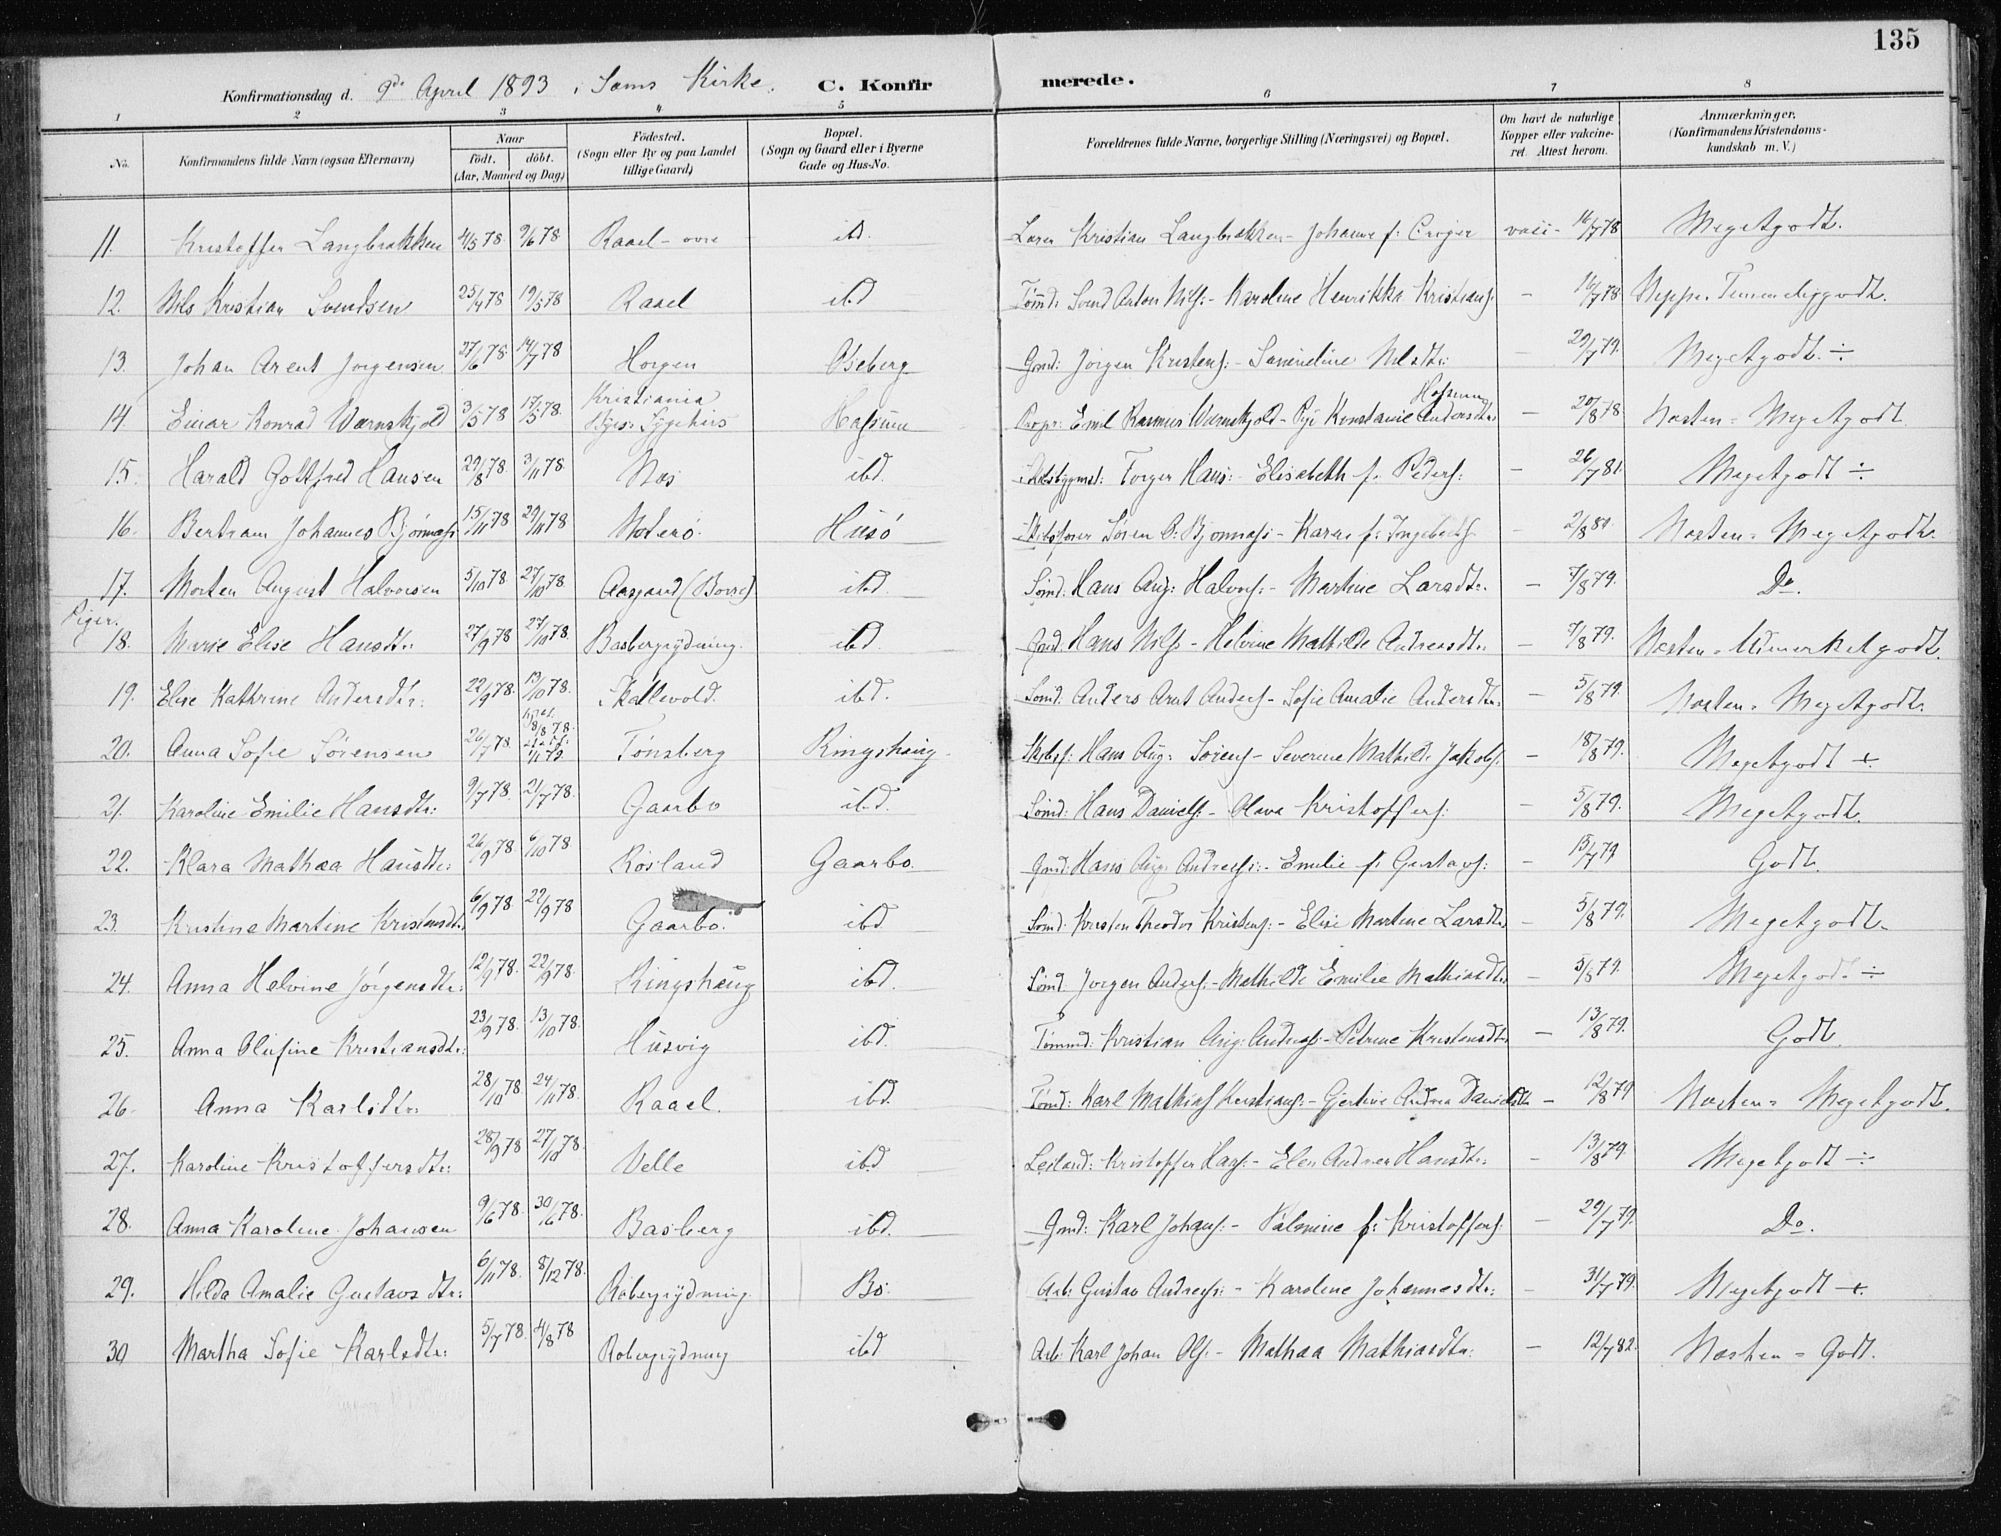 135
Konfirmationsdag d. 9de April 1893 i Sems Kirke. C. Konfirmerede.
1 2 3 4 5 6 7 8
No. Konfirmandens fulde Navn (ogsaa Efternavn) Naar født. døbt. (Aar, Maaned og Dag) Fødested. (Sogn eller By og paa Landet tillige Gaard) Bopæl. (Sogn og Gaard eller i Byerne Gade og Hus-No. Forældrenes fulde Navne, borgerlige Stilling (Næringsvei) og Bopæl. Om havt de naturlige Kopper eller vakcineret. Attest herom. Anmærkninger. (Konfirmandens Kristendomskundskab m. V.)
11. Kristoffer Langbrækken 4/5 78 9/6 78 Raael - øvre ibd. Kristian Langbrækken - Johanne f: vaii - 16/7 78 Megetgodt.
12. Nils Kristian Svendsen 25/4 78 19/5 78 Raael ibd Tømd: Svend Anton Nils: - Karoline Henrikka Kristians: - 16/7 78 Neppe Temmeliggodt.
13. Johan Arent Jørgensen 27/6 78 14/7 78 Horgen Oseberg Gmd: Jørgen Kristens: - Severine Nilsdtr: - 29/7 79. Megetgodt ÷
14. Einar Konrad Wærnskjold 3/5 78 17/5 78. Kristiania Byes Sygehus Hassum Propr: Emil Rasmus Wærnskjold - Pige Konstanse Andersdtr: Hassum - 20/8 78 Næsten - Megetgodt
15. Harald Gottfred Hansen 29/8 78. 3/11 78. Næs ibd. Skibsbygmst: Torger Hans: - Elisabeth f. Peders: - 26/7 81. Megetgodt ÷
16. Bertram Johannes Bjønnæs: 15/11 78 29/11 78 Nøterø Husø Skibsfører Søren Bjønnæs: - Karre f: Ingebrets: - 2/8 80. Næsten - Megetgodt.
17. Morten August Halvorsen 5/10 78 27/10 78 Aasgaard (Borre) ibd. Sømd: Hans Aug: Halvors: - Martine Larsdtr. - 7/8 79. Do.
Piger.
18. Marie Elise Hansdtr: 27/9 78 27/10 78. Basbergrydning. ibd. Gmd: Hans Nils: - Helvine Mathilde Andreasdtr: - 7/8 79. Næsten - Udmerketgodt.
19. Elise Kathrine Andersdtr: 22/9 78. 13/10 78. Skallevold. ibd. Sømd: Anders Arnt Anders: - Sofie Amalie Andersdtr: - 5/8 79. Næsten - Megetgodt.
20. Anna Sofie Sørensen 26/7 78. 18/8 78. Tønsberg Ringshaug Skibsf: Hans Aug: Sørens: - Severine Mathilde Jakobs: - 18/8 79. Megetgodt ÷
21. Karoline Emilie Hansdtr: 9/7 78. 21/7 78. Gaarbo ibd. Sømd: Hans Daniels: - Olava Kristoffers: - 5/8 79. Megetgodt.
22. Klara Mathea Hansdtr: 26/9 78. 6/10 78. Røsland Gaarbo. Gmd: Hans Aug: Andreas: - Emilie f: Gustavs: - 15/7 79 Godt.
23. Kristine Martine Kristensdtr: 6/9 78. 22/9 78 Gaarbo. ibd. Sømd: Kristen Theodor Kristens: - Elise Martine Larsdtr. - 5/8 79. Megetgodt.
24. Anna Helvine Jørgensdtr: 12/9 78. 22/9 78. Ringshaug ibd. Sømd. Jørgen Anders: - Mathilde Emilie Mathiasdtr. - 5/8 79. Megetgodt ÷
25. Anna Olufine Kristiansdtr: 23/9 78. 13/10 78. Husvig ibd. Tømmd: Kristian Aug: Andreas: - Petrine Kristensdtr - 13/8 79. Godt.
26. Anna Karlsdtr. 28/10 78 24/11 78. Raael. ibd. Tømd: Karl Mathias Kristians: - Gjertine Andrea Danielsdtr - 12/8 79 Næsten - Megetgodt.
27. Karoline Kristoffersdtr: 28/9 78 27/10 78. Velle ibd Leiland: Kristoffer Hans: - Elen Andrea Hansdtr: - 13/8 79. Megetgodt ÷
28. Anna Karoline Johansen 9/6 78. 30/6 78. Basberg ibd. Gmd: Karl Johans: - Palmine f: Kristoffers: - 29/7 79. Do.
29. Hilda Amalie Gustavsdtr: 6/11 78. 8/12 78. Robergrydning Bø Arb: Gustav Andreas: - Karoline Johannesdtr: - 31/7 79. Megetgodt ÷
30 Martha Sofie Karlsdtr: 5/7 78. 4/8 78 Robergrydning ibd Arb: Karl Johan Ols: - Mathea Mathiasdtr: - 12/7 82. Næsten - Godt.